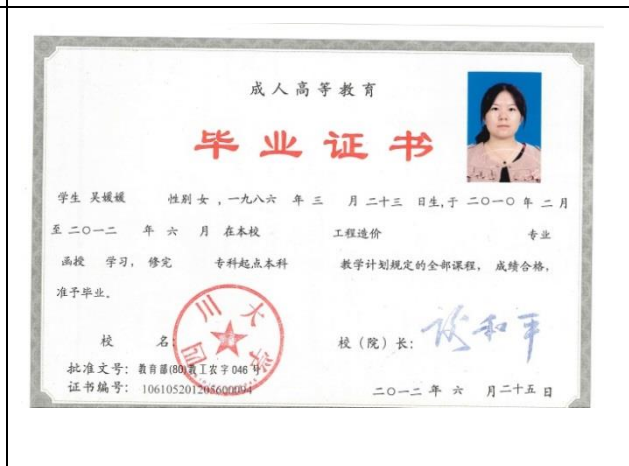 成人高等教育
毕业证书
学生 吴媛媛 性别 女 ，一九八六 年 三 月 二十三 日生,于 二〇一〇 年 二月
至 二〇一二 年 六 月 在本校 工程造价 专业
函授 学习, 修完 专科起点本科 教学计划规定的全部课程， 成绩合格，
准予毕业。
校 名：
四川大学
校（院）长：
谈和平
批准文号：教育部(80)教工农字 046 号
证书编号：106105201205600094
二〇一二 年 六 月二十五 日